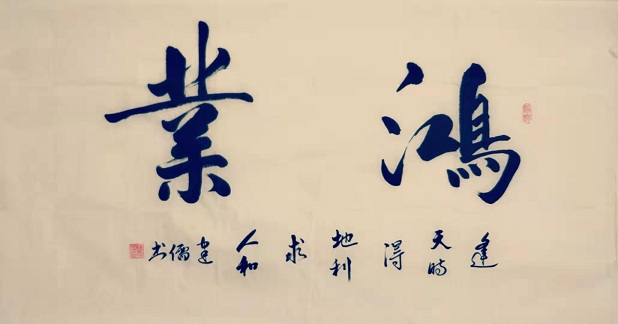 鴻業
逢天時得地利求人和
建儒书